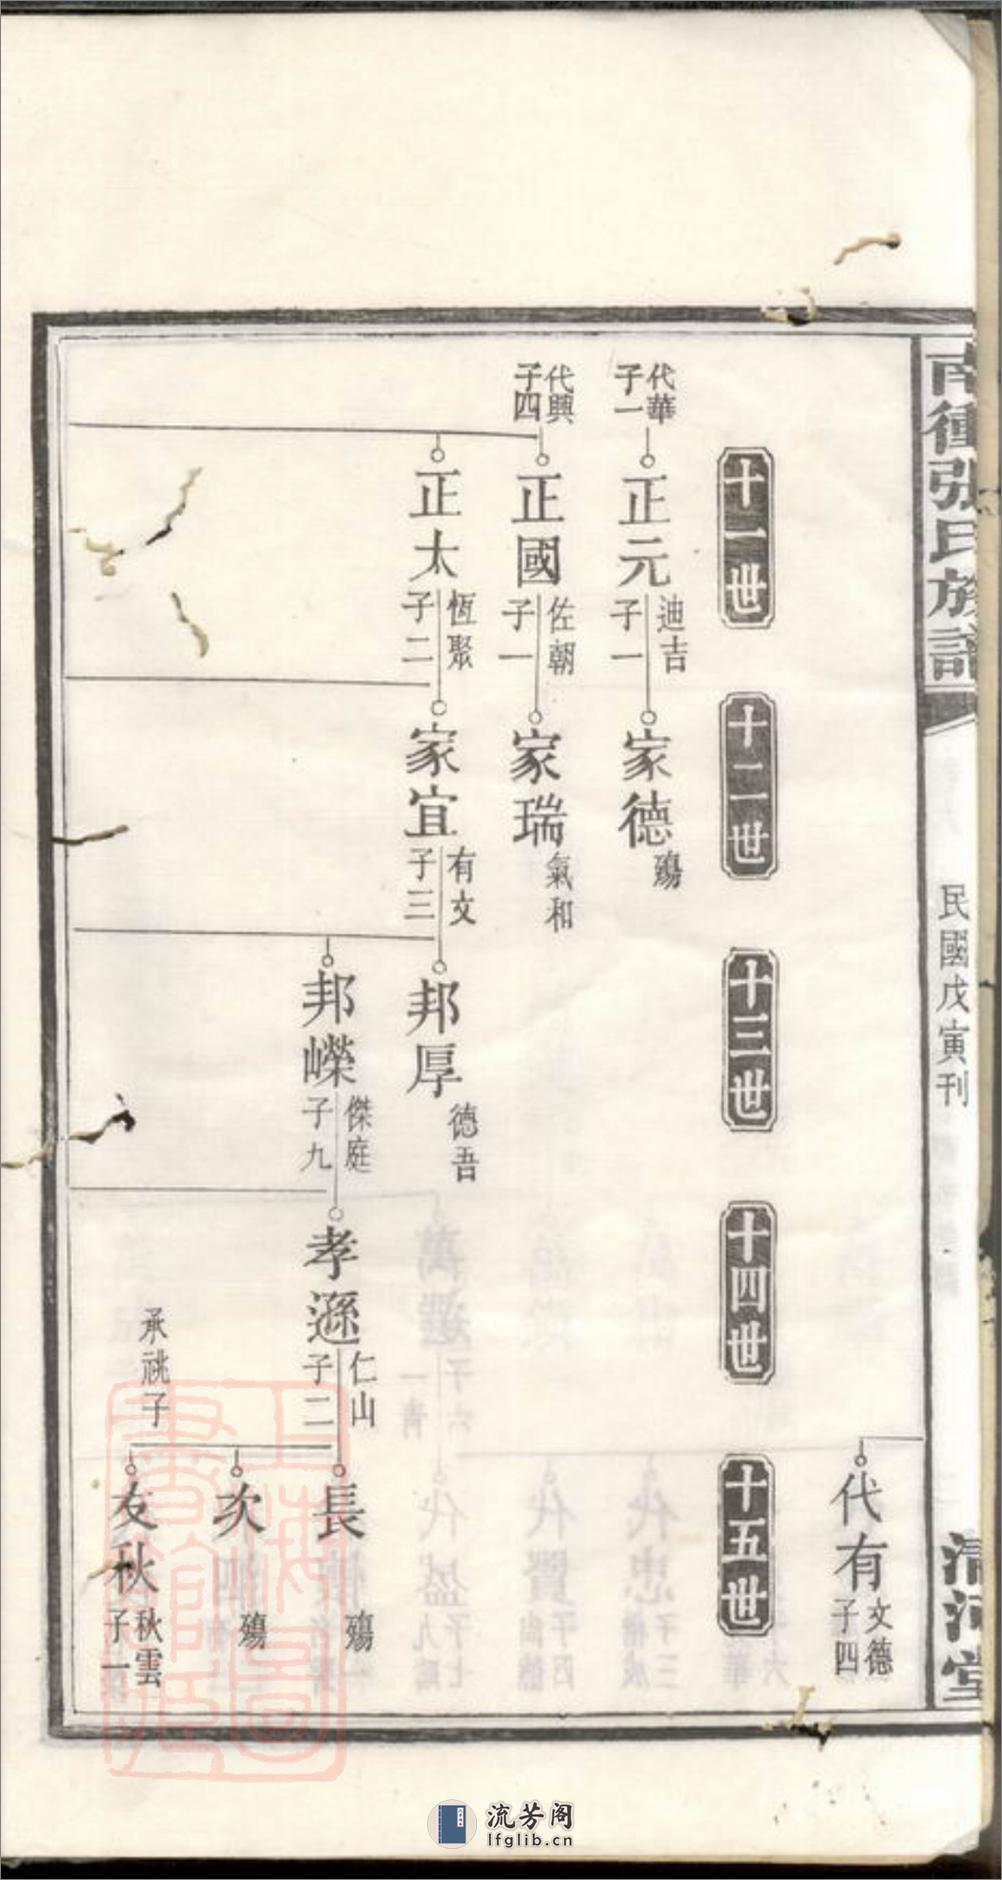 南衝張氏族譜
民國戊寅刊
清河堂
代有
文德
子四
十一世
十二世
十三世
十四世
十五世
代華
子一
正元
迪吉
子一
家德
殤
代興
子四
正國
佐朝
子一
家瑞
氣和
正太
恆聚
子二
家宜
有文
子三
邦厚
德吾
邦嶸
傑庭
子九
孝遜
仁山
子二
長
殤
次
殤
承祧子
友秋
秋雲
子一
上海圖書館藏
流芳阁
lfglib.cn